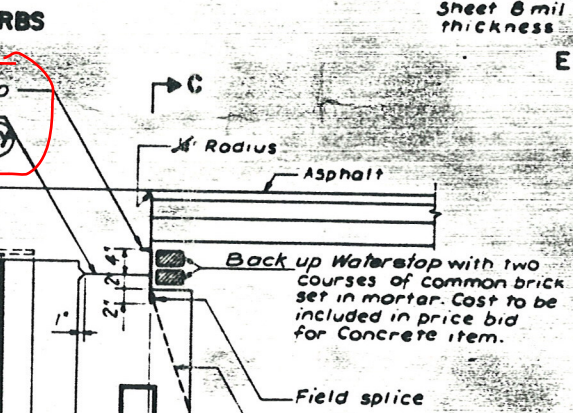 RBS
Sheet 8 mil
thickness
E
C
Radius
Asphalt
Back up Waterstop with two
courses of common brick
set in mortar. Cost to be
included in price bid
for Concrete item.
4"
2"
2"
1"
Field splice